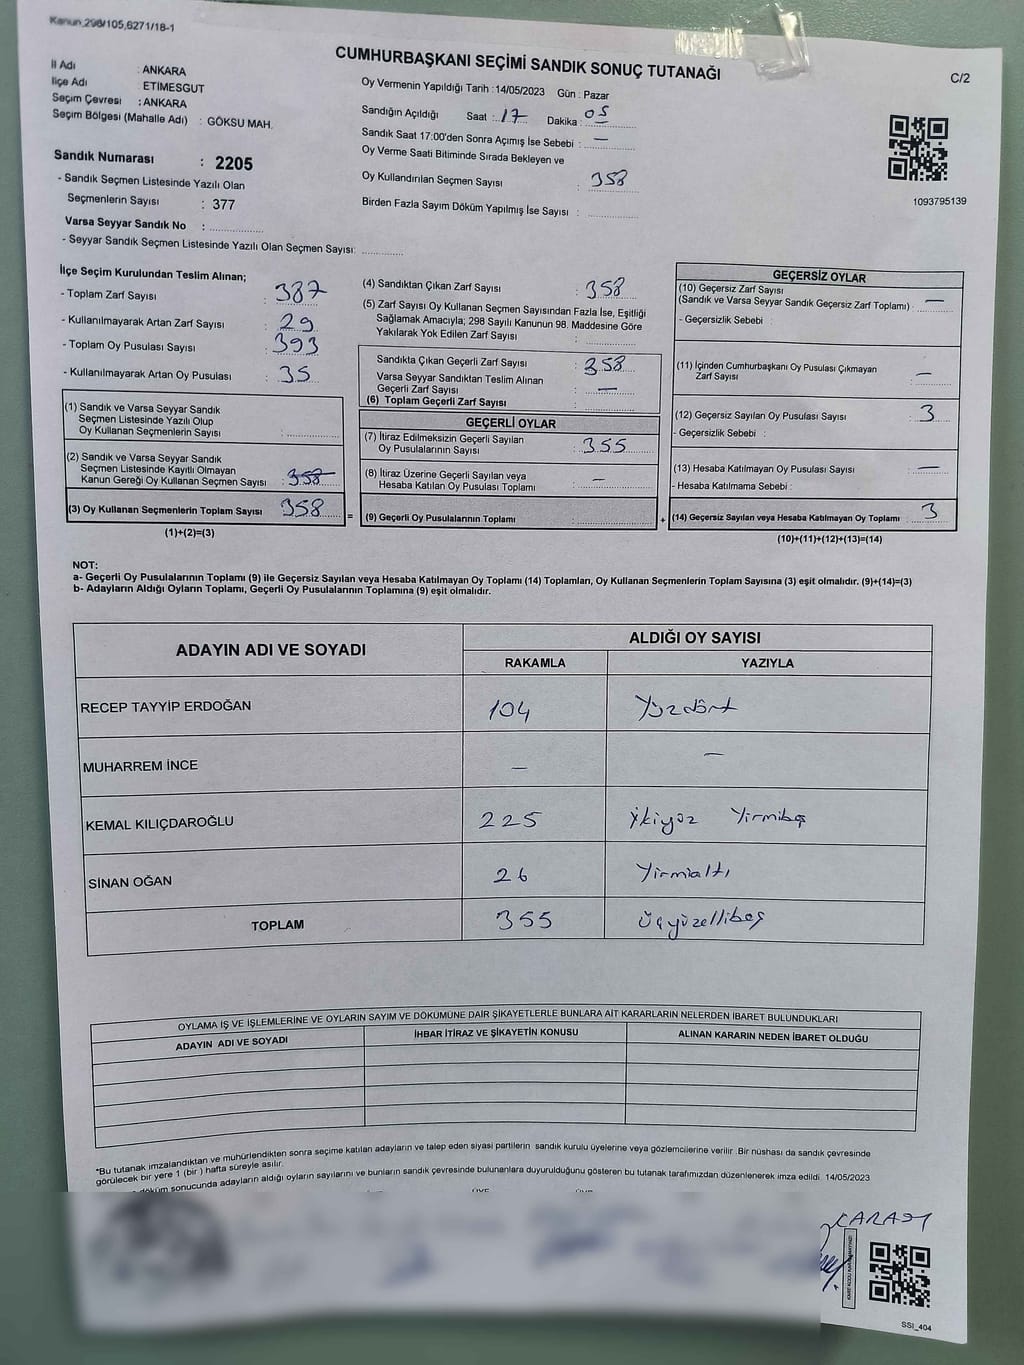 Kanun 298/105,6271/18-1
CUMHURBAŞKANI SEÇİMİ SANDIK SONUÇ TUTANAĞI
C/2
İl Adı : ANKARA
İlçe Adı : ETİMESGUT
Seçim Çevresi : ANKARA
Seçim Bölgesi (Mahalle Adı) : GÖKSU MAH.
Sandık Numarası : 2205
- Sandık Seçmen Listesinde Yazılı Olan
Seçmenlerin Sayısı : 377
Varsa Seyyar Sandık No :
- Seyyar Sandık Seçmen Listesinde Yazılı Olan Seçmen Sayısı:
Oy Vermenin Yapıldığı Tarih :14/05/2023 Gün : Pazar
Sandığın Açıldığı Saat : 17 Dakika : 05
Sandık Saat 17:00'den Sonra Açımış İse Sebebi : —
Oy Verme Saati Bitiminde Sırada Bekleyen ve
Oy Kullandırılan Seçmen Sayısı : 358
Birden Fazla Sayım Döküm Yapılmış İse Sayısı :
1093795139
İlçe Seçim Kurulundan Teslim Alınan;
- Toplam Zarf Sayısı : 387
- Kullanılmayarak Artan Zarf Sayısı : 29
- Toplam Oy Pusulası Sayısı : 393
- Kullanılmayarak Artan Oy Pusulası : 35
(1) Sandık ve Varsa Seyyar Sandık
Seçmen Listesinde Yazılı Olup
Oy Kullanan Seçmenlerin Sayısı :
(2) Sandık ve Varsa Seyyar Sandık
Seçmen Listesinde Kayıtlı Olmayan
Kanun Gereği Oy Kullanan Seçmen Sayısı : 358
(3) Oy Kullanan Seçmenlerin Toplam Sayısı : 358 =
(1)+(2)=(3)
(4) Sandıktan Çıkan Zarf Sayısı : 358
(5) Zarf Sayısı Oy Kullanan Seçmen Sayısından Fazla İse, Eşitliği
Sağlamak Amacıyla; 298 Sayılı Kanunun 98. Maddesine Göre
Yakılarak Yok Edilen Zarf Sayısı :
Sandıkta Çıkan Geçerli Zarf Sayısı : 358
Varsa Seyyar Sandıktan Teslim Alınan
Geçerli Zarf Sayısı : —
(6) Toplam Geçerli Zarf Sayısı :
GEÇERLİ OYLAR
(7) İtiraz Edilmeksizin Geçerli Sayılan
Oy Pusulalarının Sayısı : 355
(8) İtiraz Üzerine Geçerli Sayılan veya
Hesaba Katılan Oy Pusulası Toplamı : —
(9) Geçerli Oy Pusulalarının Toplamı : +
GEÇERSİZ OYLAR
(10) Geçersiz Zarf Sayısı
(Sandık ve Varsa Seyyar Sandık Geçersiz Zarf Toplamı) : —
- Geçersizlik Sebebi :
(11) İçinden Cumhurbaşkanı Oy Pusulası Çıkmayan
Zarf Sayısı : —
(12) Geçersiz Sayılan Oy Pusulası Sayısı : 3
- Geçersizlik Sebebi :
(13) Hesaba Katılmayan Oy Pusulası Sayısı : —
- Hesaba Katılmama Sebebi :
(14) Geçersiz Sayılan veya Hesaba Katılmayan Oy Toplamı : 3
(10)+(11)+(12)+(13)=(14)
NOT:
a- Geçerli Oy Pusulalarının Toplamı (9) ile Geçersiz Sayılan veya Hesaba Katılmayan Oy Toplamı (14) Toplamları, Oy Kullanan Seçmenlerin Toplam Sayısına (3) eşit olmalıdır. (9)+(14)=(3)
b- Adayların Aldığı Oyların Toplamı, Geçerli Oy Pusulalarının Toplamına (9) eşit olmalıdır.
ADAYIN ADI VE SOYADI ALDIĞI OY SAYISI
RAKAMLA YAZIYLA
RECEP TAYYİP ERDOĞAN 104 Yüzdört
MUHARREM İNCE — —
KEMAL KILIÇDAROĞLU 225 İkiyüz Yirmibeş
SİNAN OĞAN 26 Yirmialtı
TOPLAM 355 Üçyüzellibeş
OYLAMA İŞ VE İŞLEMLERİNE VE OYLARIN SAYIM VE DÖKÜMÜNE DAİR ŞİKAYETLERLE BUNLARA AİT KARARLARIN NELERDEN İBARET BULUNDUKLARI
ADAYIN ADI VE SOYADI İHBAR İTİRAZ VE ŞİKAYETİN KONUSU ALINAN KARARIN NEDEN İBARET OLDUĞU
*Bu tutanak imzalandıktan ve mühürlendikten sonra seçime katılan adayların ve talep eden siyasi partilerin sandık kurulu üyelerine veya gözlemcilerine verilir. Bir nüshası da sandık çevresinde
görülecek bir yere 1 (bir ) hafta süreyle asılır.
döküm sonucunda adayların aldığı oyların sayılarını ve bunların sandık çevresinde bulunanlara duyurulduğunu gösteren bu tutanak tarafımızdan düzenlenerek imza edildi. 14/05/2023
SSI_404